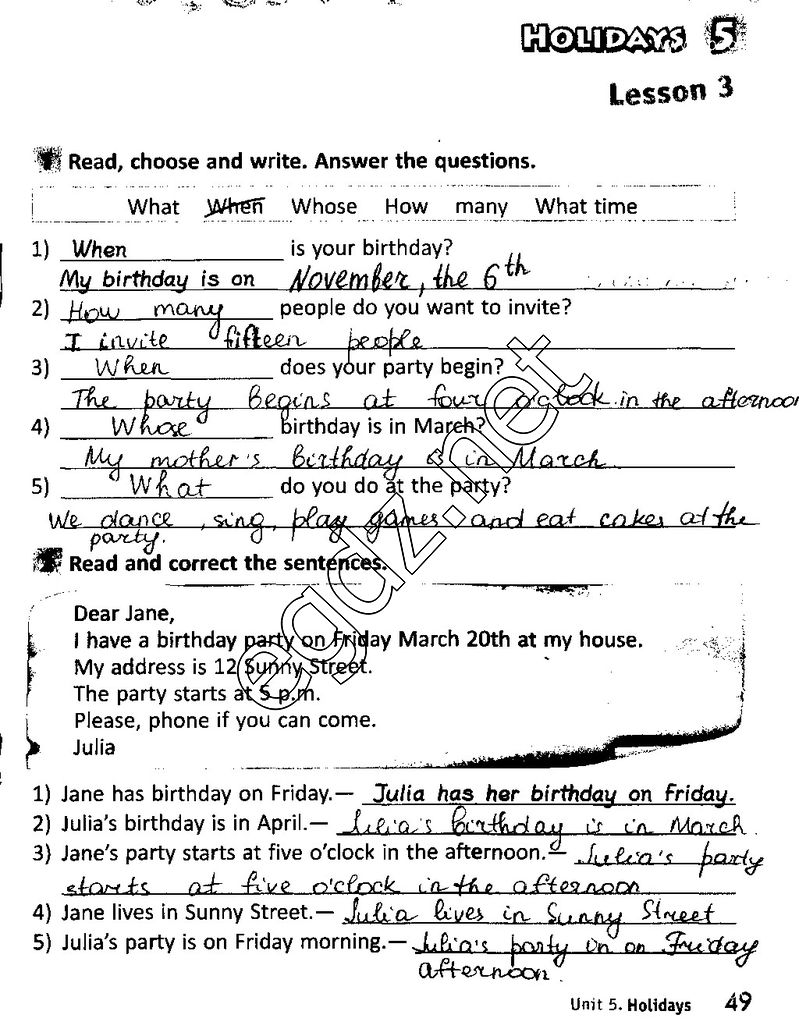 HOLIDAYS 5
Lesson 3
1 Read, choose and write. Answer the questions.
What When Whose How many What time
1) When is your birthday?
My birthday is on November, the 6th
2) How many people do you want to invite?
I invite fifteen people
3) When does your party begin?
The party begins at four o'clock in the afternoon
4) Whose birthday is in March?
My mother's birthday is in March
5) What do you do at the party?
We dance, sing, play games and eat cakes at the
party.
Read and correct the sentences.
Dear Jane,
I have a birthday party on Friday March 20th at my house.
My address is 12 Sunny Street.
The party starts at 5 p.m.
Please, phone if you can come.
Julia
1) Jane has birthday on Friday.— Julia has her birthday on Friday.
2) Julia's birthday is in April.— Julia's birthday is in March.
3) Jane's party starts at five o'clock in the afternoon.— Julia's party
starts at five o'clock in the afternoon
4) Jane lives in Sunny Street.— Julia lives in Sunny Street
5) Julia's party is on Friday morning.— Julia's party on Friday
afternoon.
Unit 5. Holidays 49
egdz.net